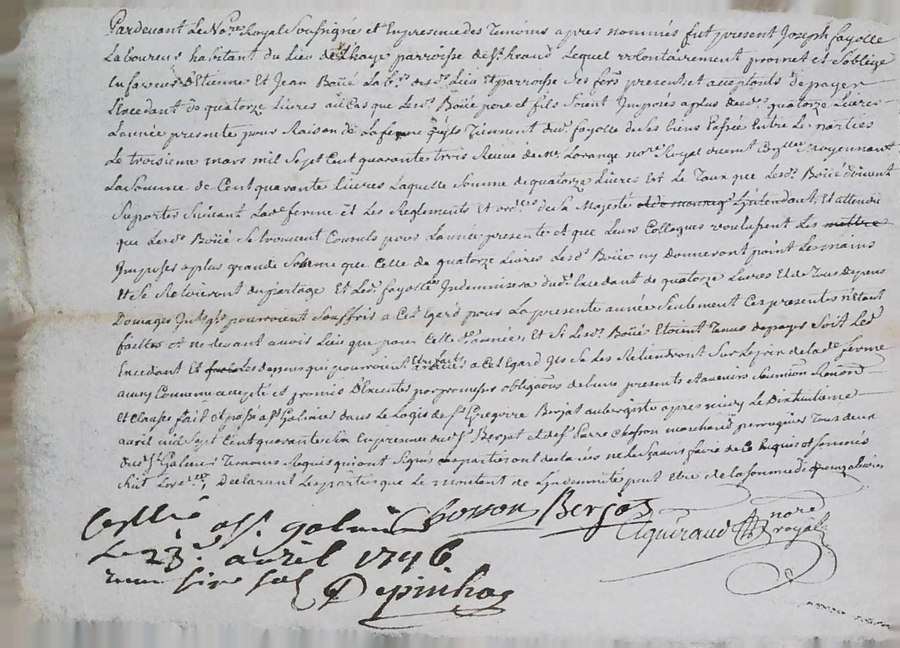 Pardevant Le No.re Royal Soussigné et En presence des Temoins apres nommés fut present Joseph fayolle
Laboureur habitant du Lieu de Lhaye parroisse de St heand Lequel volontairement promet et Soblige
En faveur D'Etienne Et Jean Boüé Lab.rs dud. Lieu Et parroisse Ses fors presents et acceptants de payer
L'Excedant de quatorze Livres au Cas que Lesd. Boüé pere et fils Soient Imposés a plus de quatorze Livres
L'année presente pour Raison de La ferme qu'ils Tiennent dud. fayolle de Ses biens Passée Entre Les parties
Le troisieme mars mil Sept Cent quarante trois Receue de me Lorange no.re Royal moyennant
La Somme de Cent quarante Livres Laquelle Somme de quatorze Livres Est Le Taux que Lesd. Boüé doivent
Suporter Suivant Lad. ferme et Les Reglements Et ord.es de Sa Majesté Et attendu
que Lesd. Boüé Se trouvent Consuls pour L'année presente et que Leurs Collegues voulussent Les mettre
Imposer a plus grande Somme que Celle de quatorze Livres Lesd. Boüé ny donneront point Les mains
Et Led. fayolle Les Indemnisera dud. Excedant de quatorze Livres Et de Tous depens
Domages Int. qls pourroient Souffrir a Cet Egard pour La presente année Seulement Ces presentes n'Etant
faittes et ne devant avoir Lieu que pour Cette d. année, Et Si Lesd. Boüé Etoient Tenus de payer Soit Led.
Excedant Et Les depens que pourroient a Cet Egard Ils Se Les Retiendront Sur Le prix de Lad. ferme
ainsy Convenu accepté et promis D'Executer par promesses obligations de Leurs presents et avenirs Soumission Renon.
Et Clauses fait et passé a St Galmier dans Le Logis de Sr Gregoire Berjat aubergiste apres midy Le
avril mil Sept Cent quarante En presence dud. Sr Berjat et de Sr Pierre Chosson marchand perruquier Tous deux
dud. St Galmier Temoins Requis qui ont Signé Les parties ont declarées ne Le Sçavoir faire de Ce Enquis et Sommés
Declarant Les parties que Le montant de L'Indemnité peut Etre de La Somme de Livres
Chosson Berjat
Aguiraud nore royal
Conllé a St galmier
Le 23e. avril 1746
Depinhac